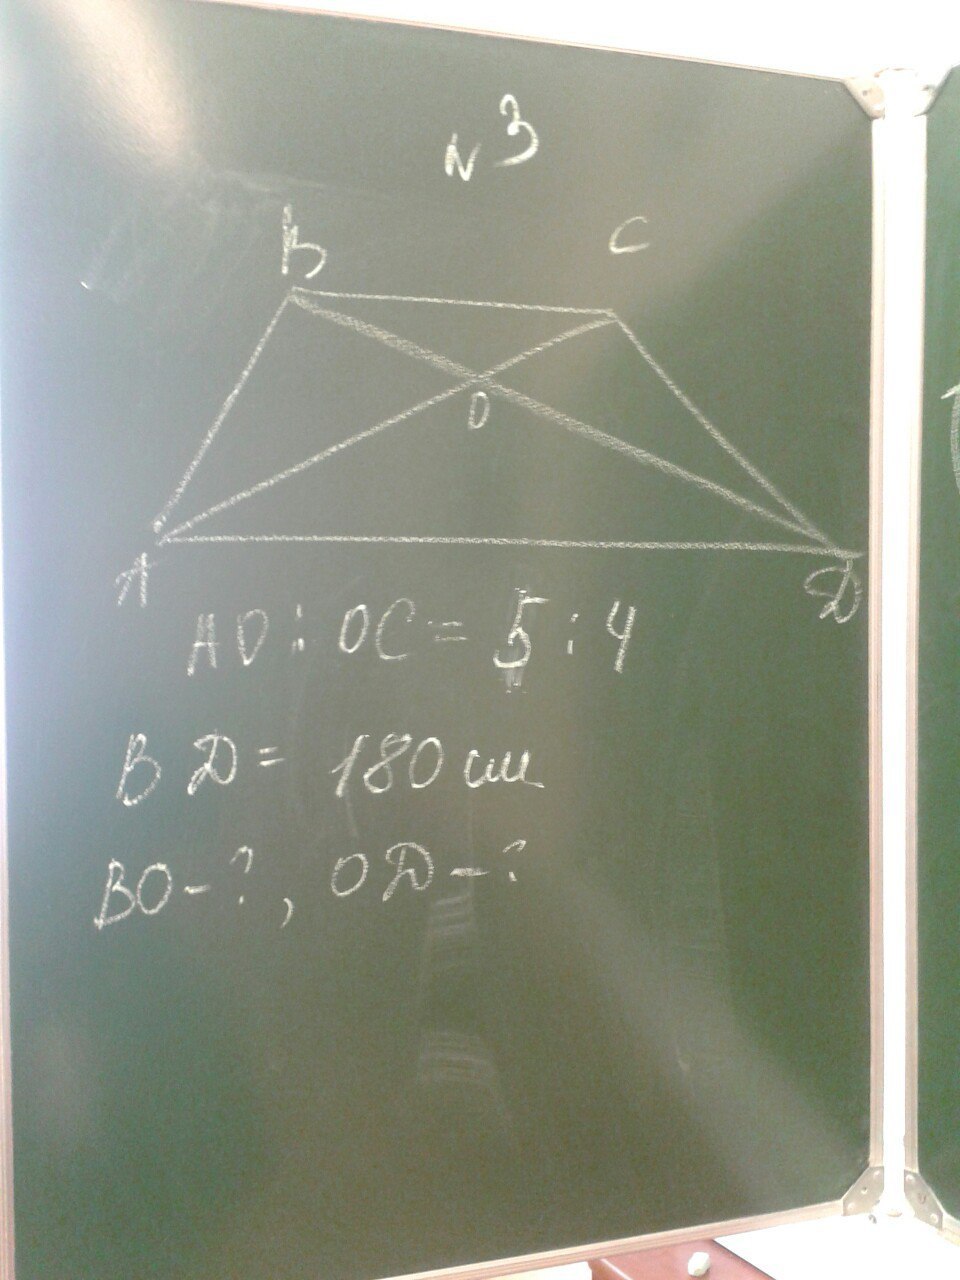 N 3
B C
O
A D
AO : OC = 5 : 4
BD = 180 см
BO - ?, OD - ?